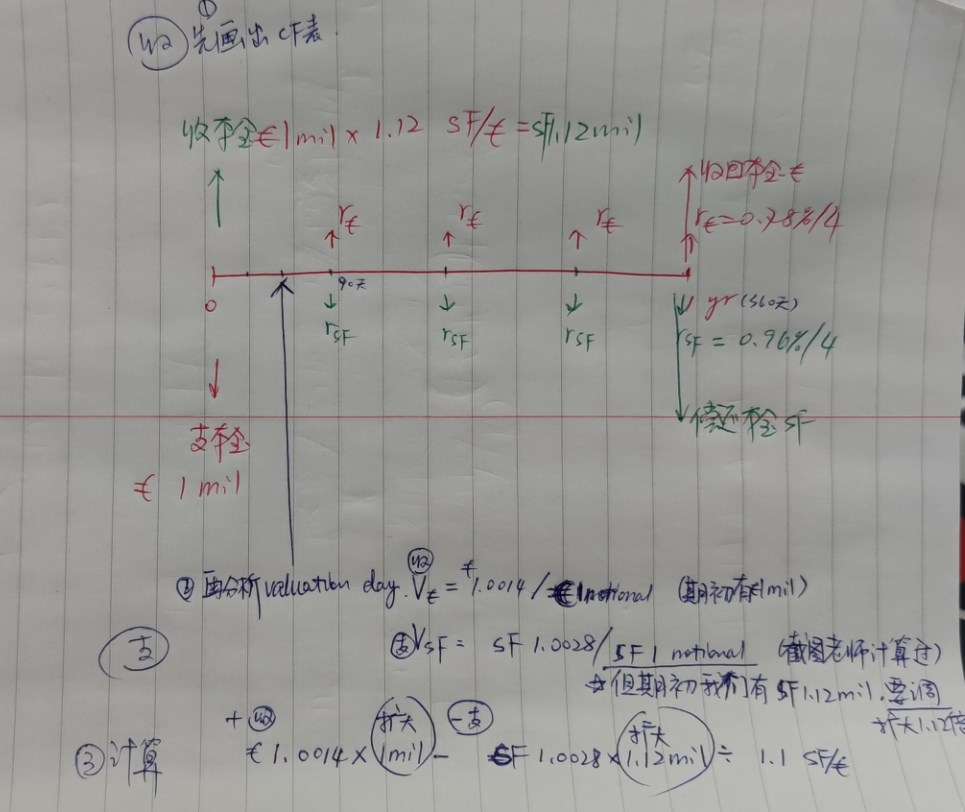 收 ①先画出CF表.
收本金€1mil × 1.12 SF/€ = SF1.12mil
收回本金€
r€ r€ r€ r€=0.78%/4
0 90天 1 yr (360天)
rSF rSF rSF rSF = 0.96%/4
支本金 偿还本金SF
€ 1 mil
② 再分析valuation day. 收 V€ = €1.0014/€1notional (期初有€1mil)
支
支 VSF = SF 1.0028/SF 1 notional (截图老师计算过)
→但期初我们有SF1.12mil.要调
扩大1.12倍
+收 扩大 -支 扩大
③计算 €1.0014×1mil - SF 1.0028×1.12mil ÷ 1.1 SF/€